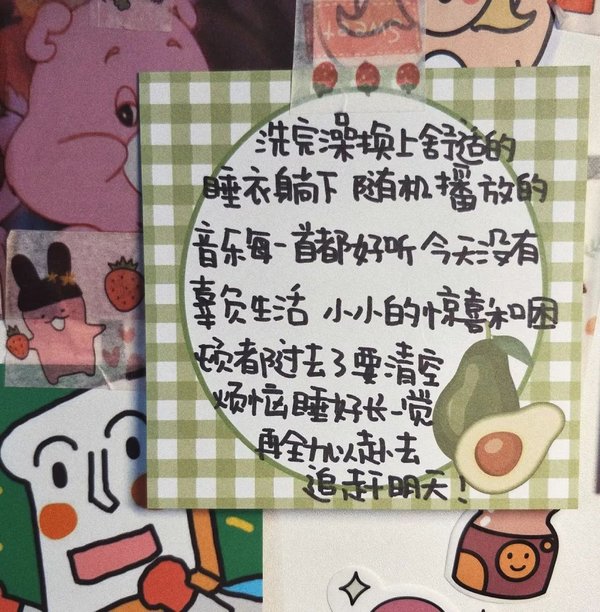 Sweet
洗完澡换上舒适的
睡衣躺下 随机播放的
音乐每一首都好听 今天没有
辜负生活 小小的惊喜和困
烦都过去了要清空
烦恼睡好长一觉
再全力以赴去
追赶明天!